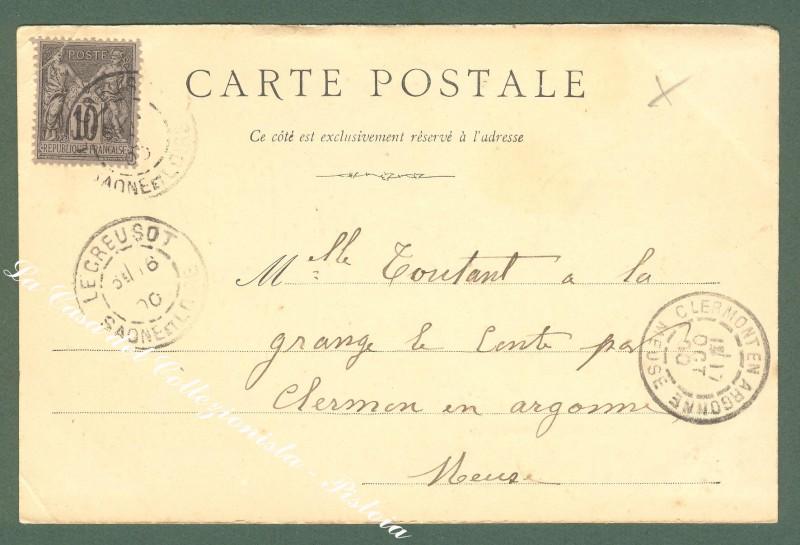 POSTE
10
REPUBLIQUE FRANÇAISE
SAONE ET LOIRE
CARTE POSTALE
Ce côté est exclusivement réservé à l'adresse
LE CREUSOT
16
00
SAONE ET LOIRE
Melle Toutant a la
grange le Conte par
Clermon en argonne
Meuse
CLERMONT EN ARGONNE
17
OCT
00
MEUSE
La Casa del Collezionista - Pistoia